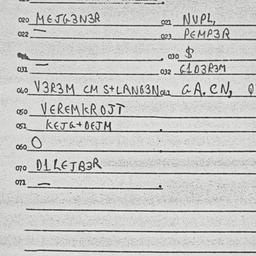 020 MEJG3N3R 021 NUPL,
022 — 023 PEMP3R
— 030 $
031 032 G1D3R3M
040 V3R3M CM S+LRNG3N 042 GA. CN,
050 VEREMKROJT
051 KEJG+DEJM
060 O
070 D1LEJB3R
071 —